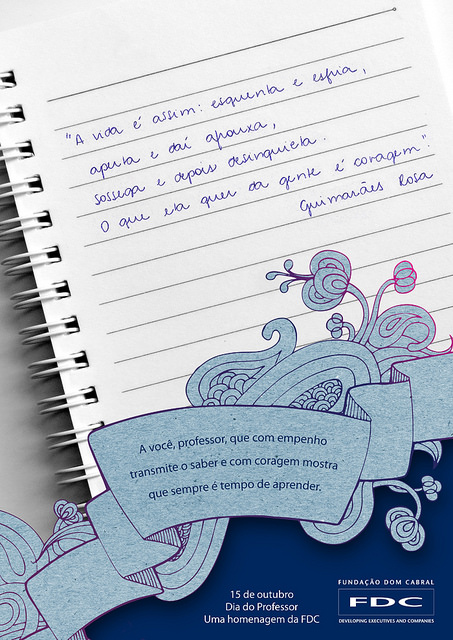 "A vida é assim: esquenta e esfria,
aperta e daí afrouxa,
sossega e depois desinquieta.
O que ela quer da gente é coragem".
Guimarães Rosa
A você, professor, que com empenho
transmite o saber e com coragem mostra
que sempre é tempo de aprender.
15 de outubro
Dia do Professor
Uma homenagem da FDC
FUNDAÇÃO DOM CABRAL
FDC
DEVELOPING EXECUTIVES AND COMPANIES